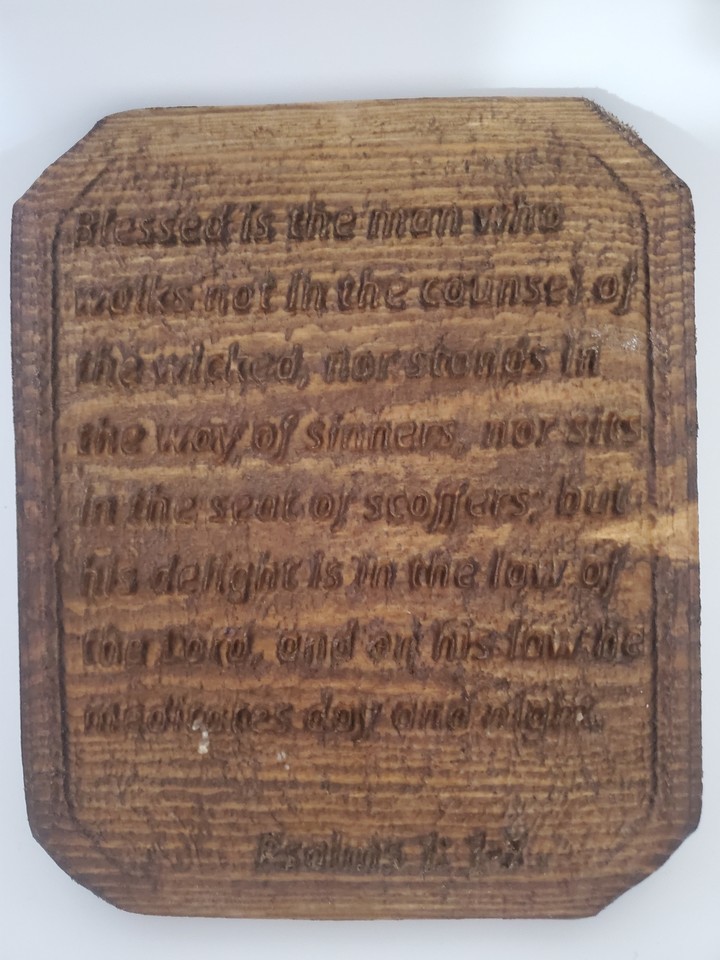 Blessed is the man who
walks not in the counsel of
the wicked, nor stands in
the way of sinners, nor sits
in the seat of scoffers; but
his delight is in the law of
the Lord, and on his law he
meditates day and night.
Psalms 1: 1-2